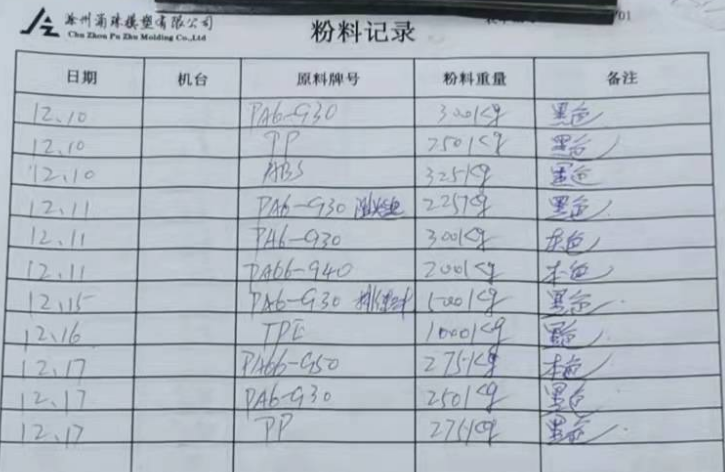 滁州莆珠模塑有限公司
Chu Zhou Pu Zhu Molding Co.,Ltd
01
粉料记录
日期 机台 原料牌号 粉料重量 备注
12.10 PA6-G30 300Kg 黑色
12.10 PP 250Kg 黑色
12.10 ABS 325Kg 黑色
12.11 PA6-G30 225Kg 黑色
12.11 PA6-G30 300Kg 灰色
12.11 PA66-G40 200Kg 本色
12.15 PA6-G30 500Kg 黑色
12.16 TPE 1000Kg 黑色
12.17 PA66-G50 275Kg 本色
12.17 PA6-G30 250Kg 黑色
12.17 PP 275Kg 黑色